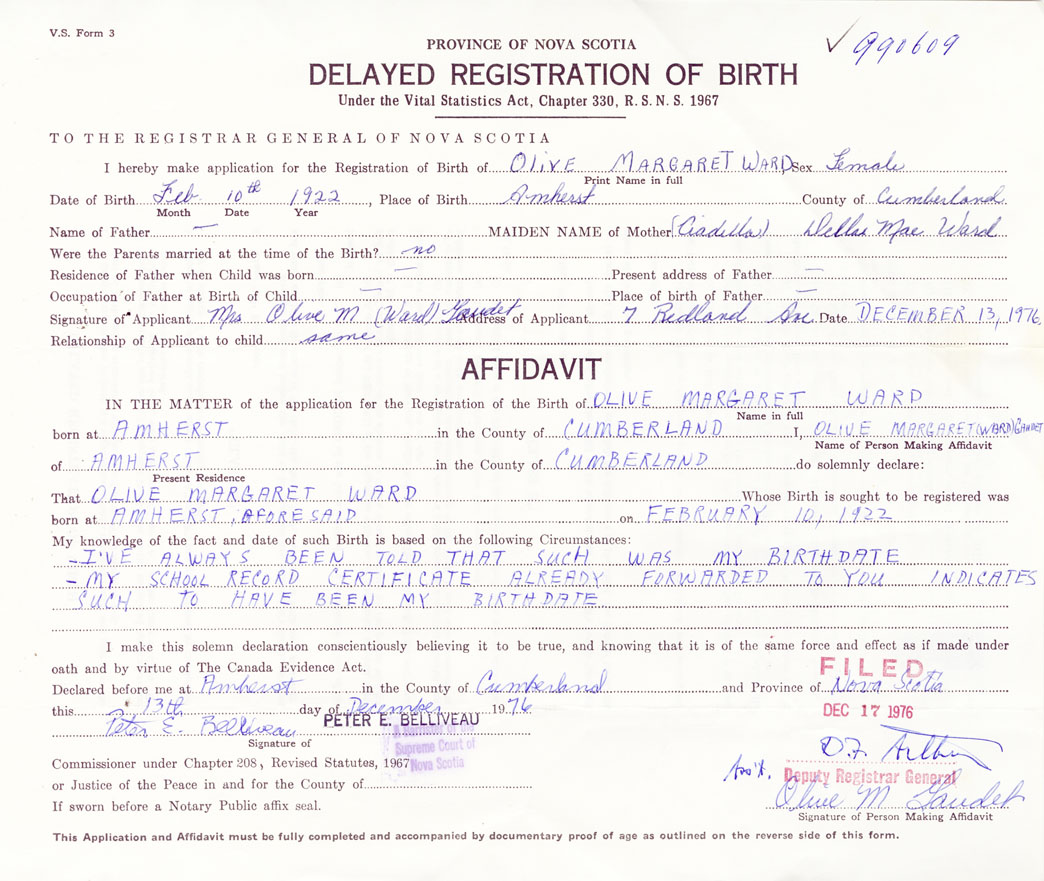 V.S. Form 3
✓ 990609
PROVINCE OF NOVA SCOTIA
DELAYED REGISTRATION OF BIRTH
Under the Vital Statistics Act, Chapter 330, R. S. N. S. 1967
TO THE REGISTRAR GENERAL OF NOVA SCOTIA
I hereby make application for the Registration of Birth of OLIVE MARGARET WARD Sex Female
Print Name in full
Date of Birth Feb. 10th 1922, Place of Birth Amherst County of Cumberland
Month Date Year
Name of Father — MAIDEN NAME of Mother (Ciadella) Della Mae Ward
Were the Parents married at the time of the Birth? no
Residence of Father when Child was born — Present address of Father —
Occupation of Father at Birth of Child — Place of birth of Father —
Signature of Applicant Mrs Olive M (Ward) Gaudet Address of Applicant 7 Redland Ave. Date DECEMBER 13, 1976.
Relationship of Applicant to child same
AFFIDAVIT
IN THE MATTER of the application for the Registration of the Birth of OLIVE MARGARET WARD
Name in full
born at AMHERST in the County of CUMBERLAND I, OLIVE MARGARET (WARD) GAUDET
Name of Person Making Affidavit
of AMHERST in the County of CUMBERLAND do solemnly declare:
Present Residence
That OLIVE MARGARET WARD Whose Birth is sought to be registered was
born at AMHERST, AFORESAID on FEBRUARY 10, 1922
My knowledge of the fact and date of such Birth is based on the following Circumstances:
- I'VE ALWAYS BEEN TOLD THAT SUCH WAS MY BIRTHDATE
- MY SCHOOL RECORD CERTIFICATE ALREADY FORWARDED TO YOU INDICATES
SUCH TO HAVE BEEN MY BIRTHDATE
I make this solemn declaration conscientiously believing it to be true, and knowing that it is of the same force and effect as if made under
oath and by virtue of The Canada Evidence Act.
FILED
Declared before me at Amherst in the County of Cumberland and Province of Nova Scotia
this 13th day of December 1976
DEC 17 1976
Peter E. Belliveau PETER E. BELLIVEAU
A Barrister of the
Signature of
Supreme Court of
Commissioner under Chapter 208, Revised Statutes, 1967
Nova Scotia
Ass't. Deputy Registrar General
or Justice of the Peace in and for the County of
Olive M Gaudet
If sworn before a Notary Public affix seal.
Signature of Person Making Affidavit
This Application and Affidavit must be fully completed and accompanied by documentary proof of age as outlined on the reverse side of this form.